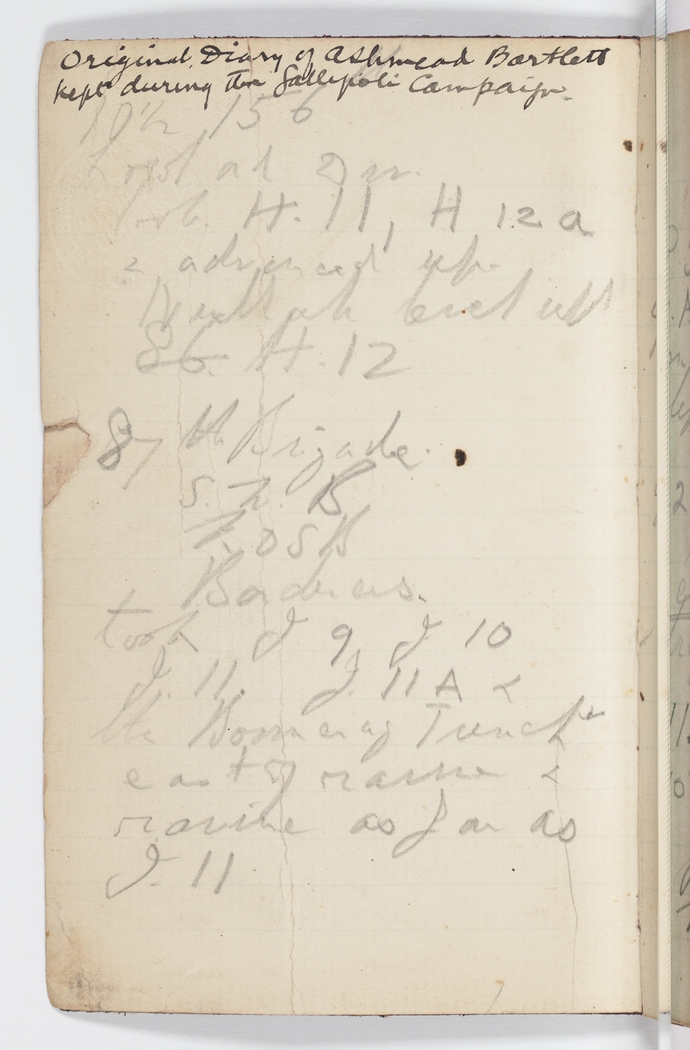 Original Diary of Ashmead Bartlett
kept during the Gallipoli Campaign.
10½ 156
at
H. 11, H 12 a
& advanced up
up
86. H. 12
87th Brigade.
S. W. B
K.O S B
Borderers.
took J. 9 J. 10
J. 11. J. 11 A &
the Boomerang Trench
east of ravine &
ravine as far as
J. 11